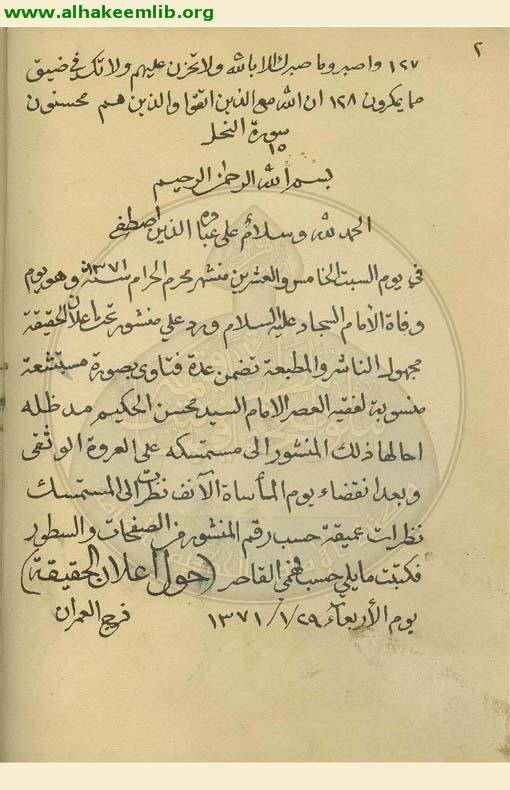 www.alhakeemlib.org
٢
١٢٧ واصبر وما صبرك الا بالله ولا تحزن عليهم ولا تك في ضيق
مما يمكرون ١٢٨ ان الله مع الذين اتقوا والذين هم محسنون
سورة النحل
١٥
بسم الله الرحمن الرحيم
الحمد لله وسلام على عباده الذين اصطفى
في يوم السبت الخامس والعشرين من شهر محرم الحرام سنة ١٣٧١ وهو يوم
وفاة الأمام السجاد عليه السلام ورد علي منشور تحت اعلان الحقيقة
مجهول الناشر والمطبعة تضمن عدة فتاوى بصورة مستشعة
منسوبة لفقيه العصر الامام السيد محسن الحكيم مد ظله
احالها ذلك المنشور الى مستمسكه على العروة الوثقى
وبعد انقضاء يوم المأساة الآنف نظرت الى المستمسك
نظرات عميقة حسب رقم المنشور من الصفحات والسطور
فكتبت ما يلي حسب فهمي القاصر (حول اعلان الحقيقة)
يوم الأربعاء ١٣٧١/١/٢٩ فرج العمران